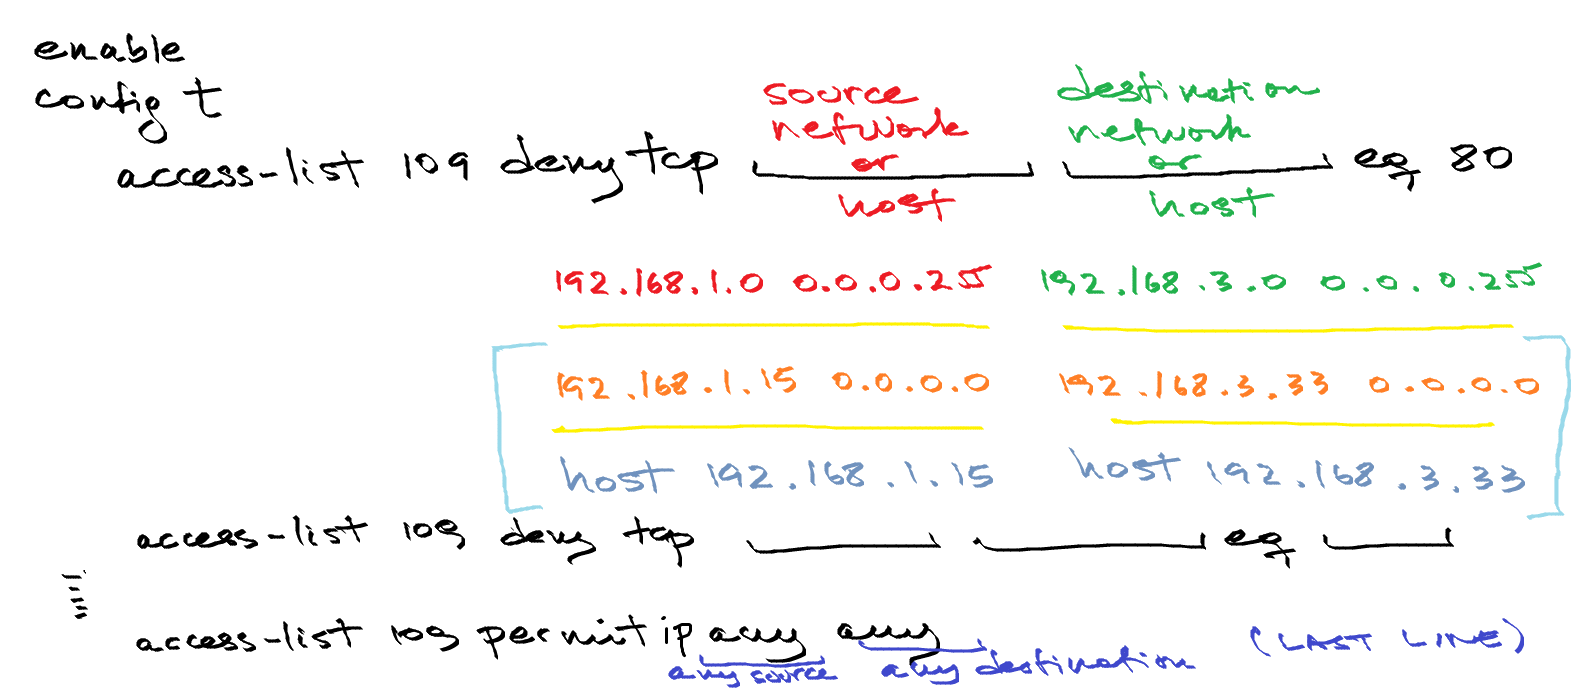 enable
config t
source network or host
destination network or host
access-list 109 deny tcp eq 80
192.168.1.0 0.0.0.255 192.168.3.0 0.0.0.255
192.168.1.15 0.0.0.0 192.168.3.33 0.0.0.0
host 192.168.1.15 host 192.168.3.33
access-list 109 deny tcp eq
access-list 109 permit ip any any (LAST LINE)
any source any destination